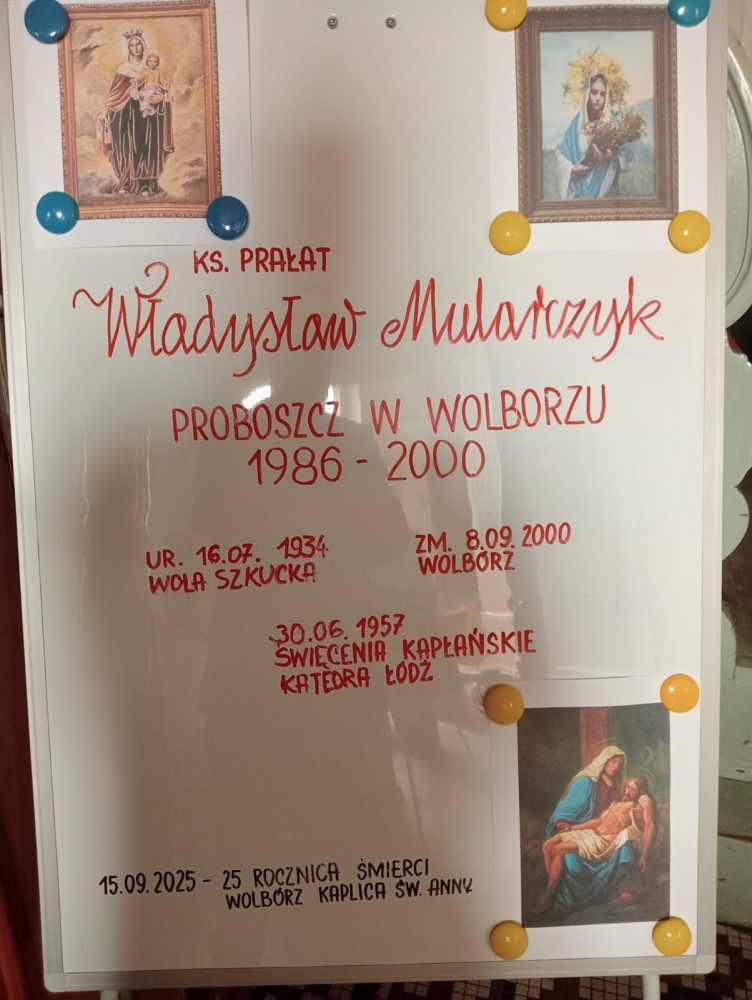 KS. PRAŁAT
Władysław Mularczyk
PROBOSZCZ W WOLBORZU
1986 - 2000
UR. 16.07. 1934
WOLA SZKUCKA
ZM. 8.09. 2000
WOLBÓRZ
30.06. 1957
ŚWIĘCENIA KAPŁAŃSKIE
KATEDRA ŁÓDŹ
15.09.2025 - 25 ROCZNICA ŚMIERCI
WOLBÓRZ KAPLICA ŚW. ANNY